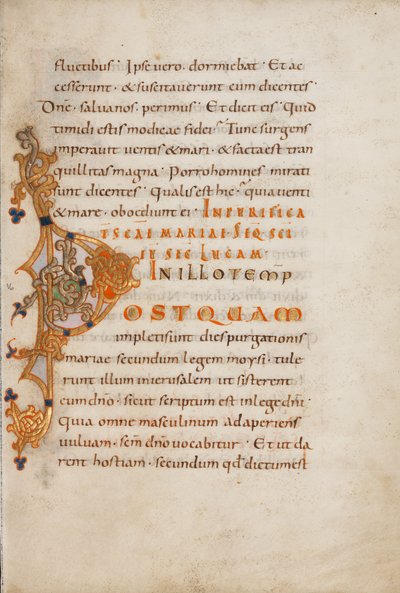 fluctibus · Ipse uero · dormiebat · Et ac
cesserunt · & suscitauerunt eum dicentes
Dne · salua nos · perimus · Et dicit eis · Quid
timidi estis modicae fidei · Tunc surgens
imperauit uentis & mari · & facta est tran
quillitas magna · Porro homines mirati
sunt dicentes · Qualis est hic · quia uenti
& mare · oboediunt ei · IN PURIFICA
SCAE MARIAE · SEQ SCI
EU SEC LUCAM ·
IN ILLO TEMP
POSTQUAM
impleti sunt dies purgationis
mariae secundum legem moysi · tule
runt illum in ierusalem ut sisterent
eum dno · sicut scriptum est in lege dni ·
quia omne masculinum adaperiens
uuluam · scm dno uocabitur · Et ut da
rent hostiam · secundum qd dictum est